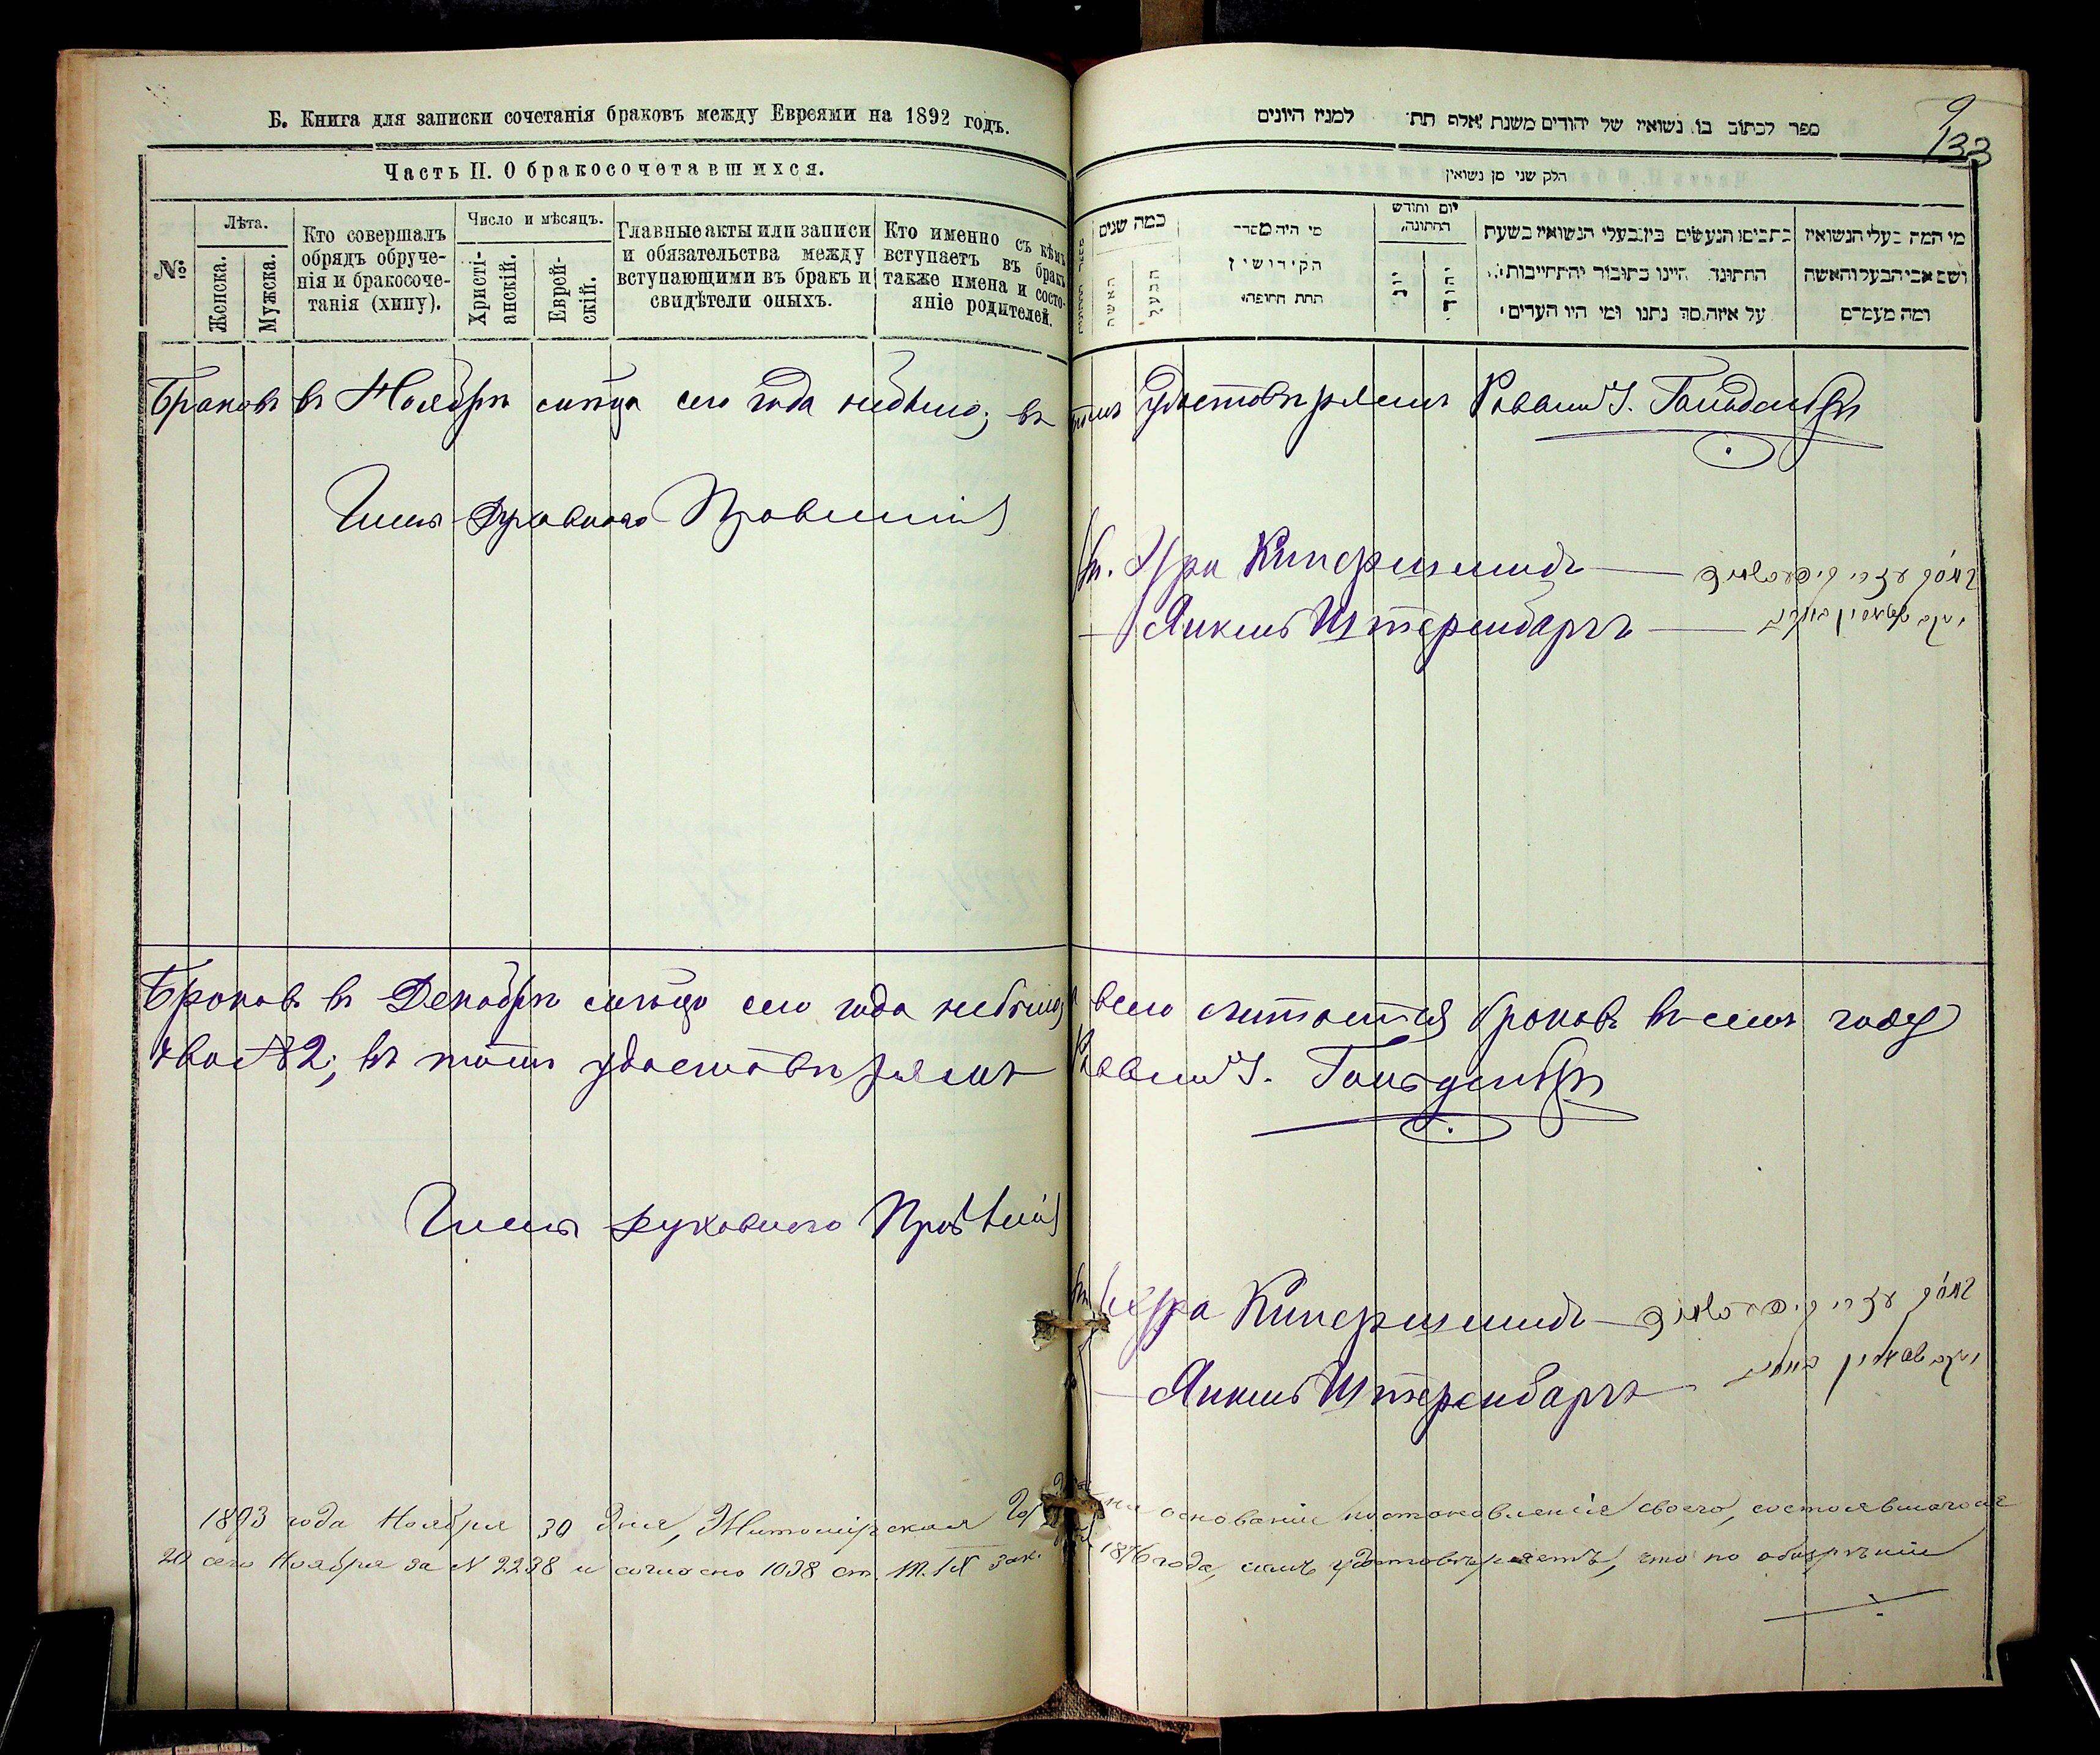 Б. Книга для записки сочетанія браковъ между Евреями на 1892 годъ.
Часть II. О бракосочетавшихся.
№
Лѣта.
Женска.
Мужска.
Кто совершалъ
обрядъ обруче-
нія и бракосоче-
танія (хипу).
Число и мѣсяцъ.
Христі-
анскій.
Еврей-
скій.
Главные акты или записи
и обязательства между
вступающими въ бракъ и
свидѣтели оныхъ.
Кто именно съ кѣмъ
вступаетъ въ бракъ
также имена и состо-
яніе родителей.
Браковъ въ Ноябрѣ сего года небыло; въ
Членъ духовнаго Правленія
Браковъ въ Декабрѣ сего года небыло
два № 2; въ томъ удостовѣряемъ
Членъ духовнаго Правленія
1893 года Ноября 30 дня, Житомірская
20 сего Ноября за N 2238 и согласно 1038 ст. т. IX зак.
9
133
ספר לכתוב בו נשואין של יהודים משנת אלף תת למנין היונים
חלק שני מן נשואין
כמה שנים
האשה
הבעל
מי היה מסדר
הקידושין
תחת החופה
יום וחודש
החתונה
כתבים הנעשים בין בעלי הנשואין בשעת
החתונה היינו כתובור והתחייבות
על איזה סך נתנו ומי היו העדים
מי המה בעלי הנשואין
ושם אבי הבעל והאשה
ומה מעמדם
томъ удостовѣряемъ Раввинъ І. Гольденбергъ
Кипершмидъ
Янкель Штеренбаргъ
всего считается браковъ въ семъ году
Раввинъ І. Гольденбергъ
Кипершмидъ
Янкель Штеренбаргъ
на основаніи постановленія своего, состоявшагося
1876 года, симъ удостовѣряетъ, что по обозрѣніи